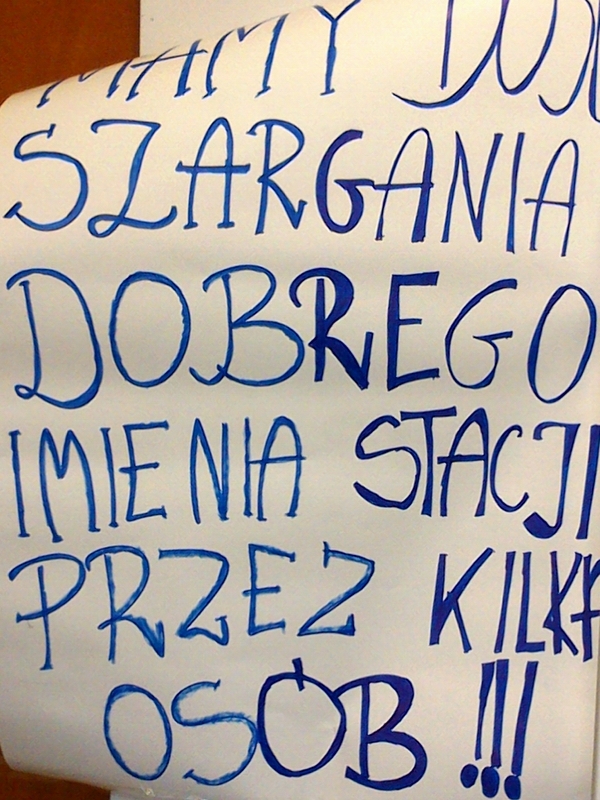 MAMY
SZARGANIA
DOBREGO
IMIENIA STACJI
PRZEZ KILKA
OSÓB !!!